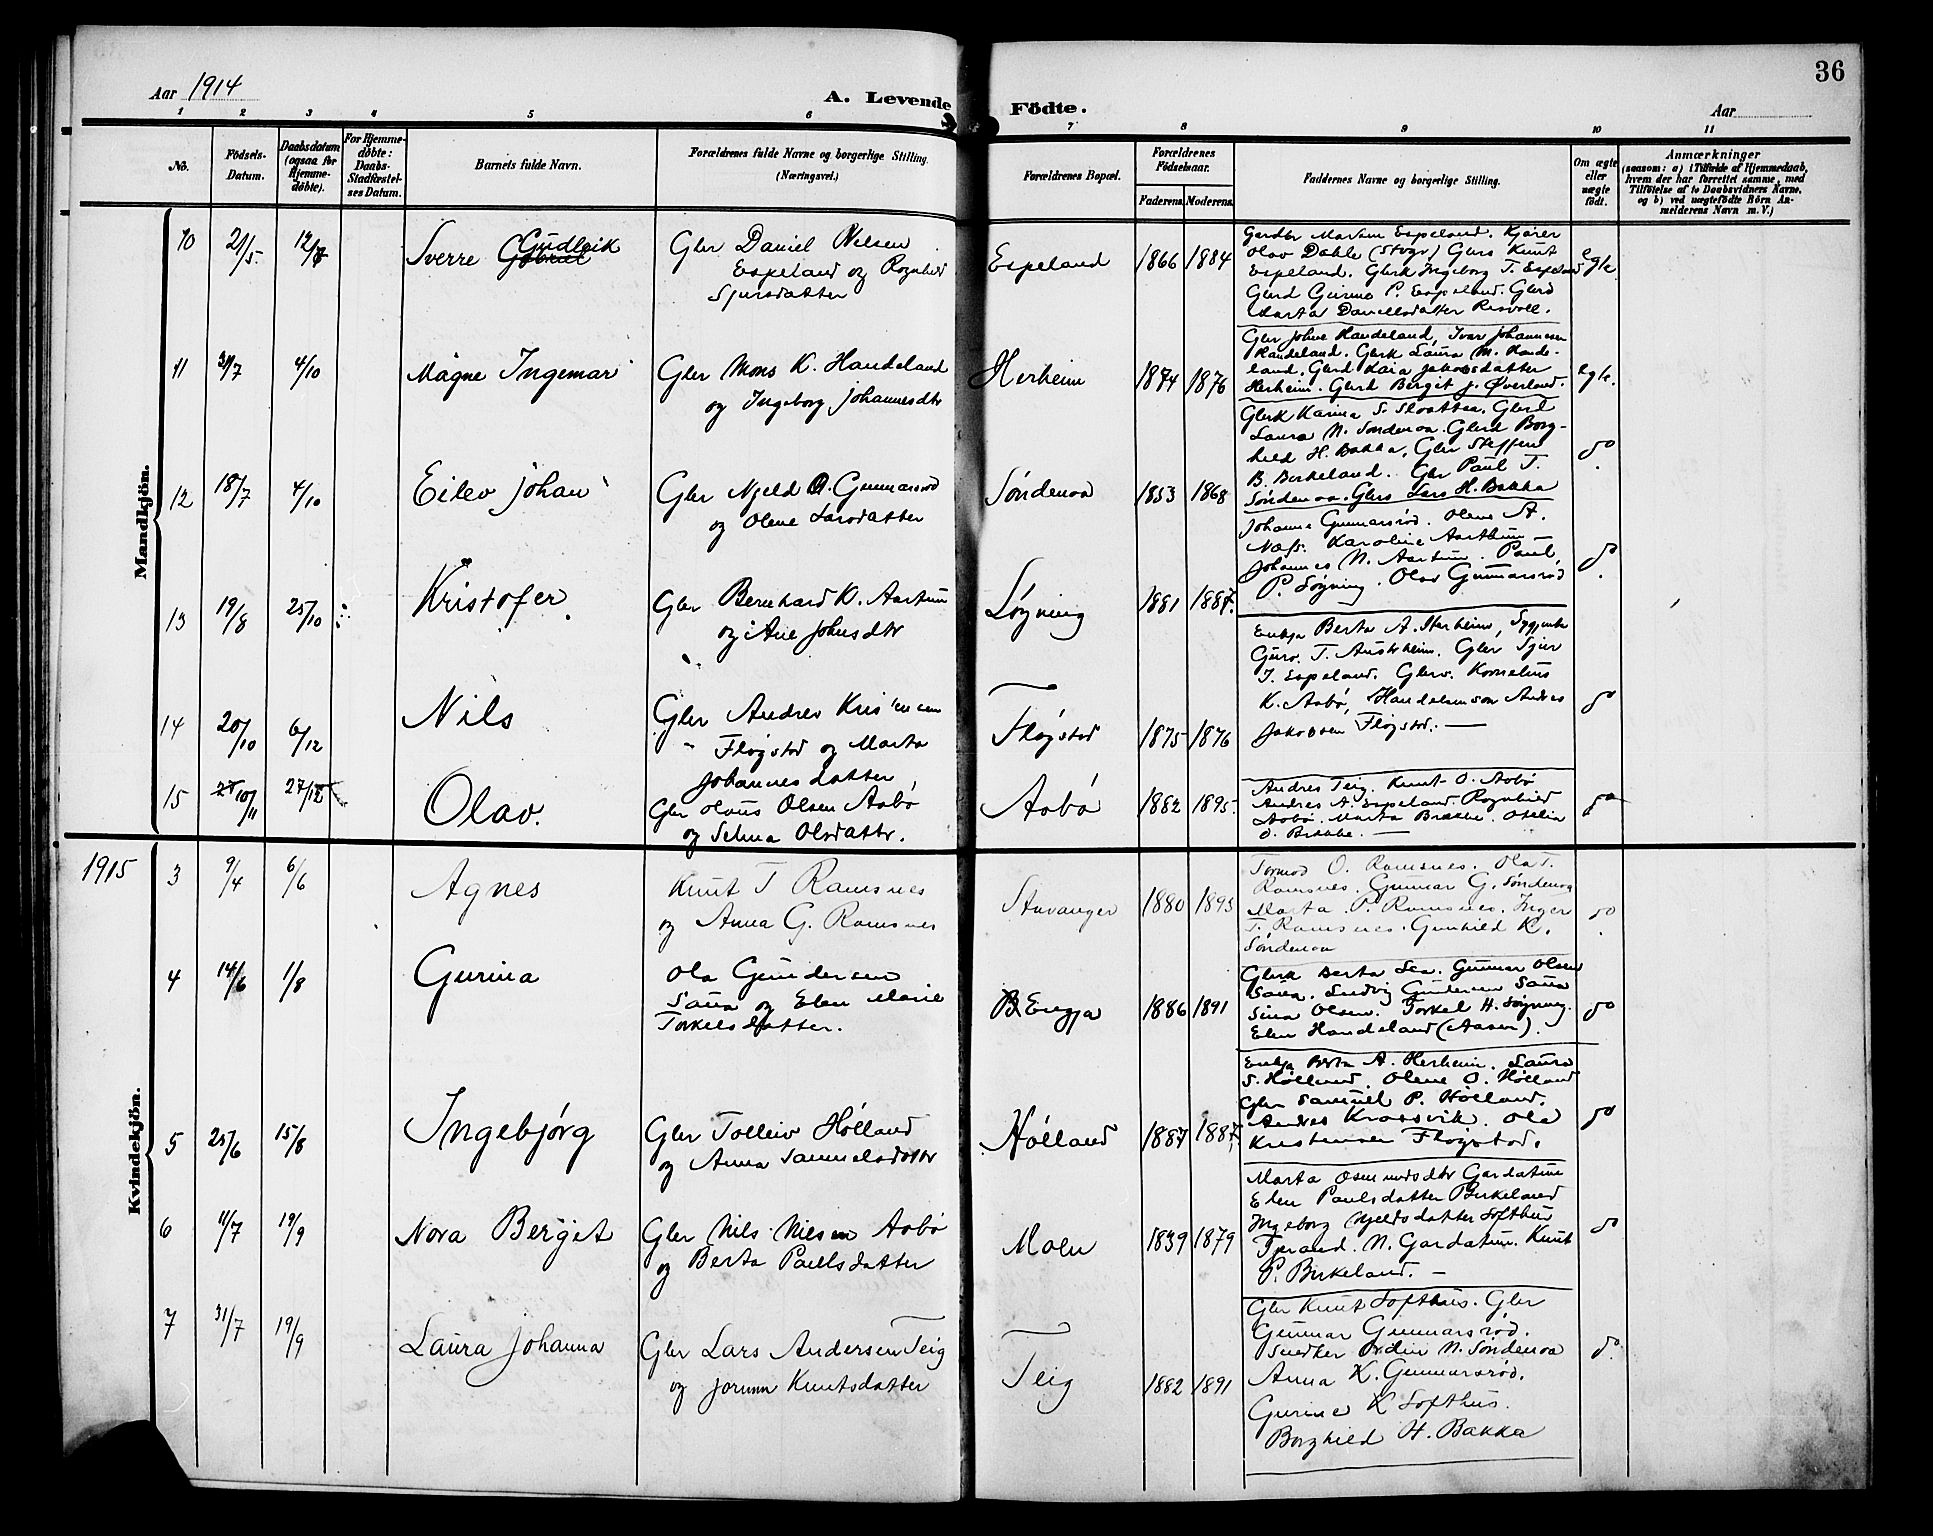 36
Aar 1914
A. Levende Fødte.
Aar
1 2 3 4 5 6 7 8 9 10 11
No.
Fødsels-
Datum.
Daabsdatum
(ogsaa for
Hjemme-
døbte).
For Hjemme-
døbte:
Daabs-
Stadfæstel-
ses Datum.
Barnets fulde Navn.
Forældrenes fulde Navne og borgerlige Stilling.
(Næringsvei.)
Forældrenes Bopæl.
Forældrenes
Fødselsaar.
Faderens. Moderens.
Faddernes Navne og borgerlige Stilling.
Om ægte
eller
uægte
født.
Anmærkninger
(saasom: a) i Tilfælde af Hjemmedaab,
hvem der har forrettet samme, med
Tilføielse af to Daabsvidners Navne,
og b) ved uægtefødte Børn An-
melderens Navn m. V.)
Mandkjön.
10 21/5 12/7 Sverre Gabriel Gudleik
Gbr Daniel Nilsen
Espeland og Ragnhild
Sjursdatter
Espeland 1866 1884
Gardbr Martin Espeland. Kjører
Olav Dahle (Stvgr) Gbrs Knut
Espeland. Gbrk Ingeborg T. Espeland
Gbrd Gurine P. Espeland. Gbrd
Marta Danielsdatter Risvoll.
egte
11 31/7 4/10 Magne Ingemar
Gbr Mons K. Handeland
og Ingeborg Johannesdtr
Herheim 1874 1876
Gbr Johne Handeland, Ivar Johannesen
Handeland. Gbrk Laura M. Hande-
land, Gbrd Kaia Jakobsdatter
Herheim. Gbrd Berget J. Øverland.
egte.
12 18/7 4/10 Eilev Johan
Gbr Njeld A. Gunnarsrød
og Olene Larsdatter
Søndenaa 1853 1868
Gbrk Karina S. Slaattea. Gbrd
Laura N. Søndenaa. Gbrd Borg-
hild H. Bakka, Gbr Steffen
B. Birkeland. Gbr Paul T.
Søndenaa. Gbrs Lars H. Bakka
do
13 19/8 25/10 Kristofer.
Gbr Bernhard K. Aartun
og Ane Johnsdtr
Løgning 1881 1887.
Johanne Gunnarsrød. Olene A.
Næss. Karoline Aarthun —
Johannes N. Aartun. Paul
P. Løgning. Olav Gunnarsrød
do
14 20/10 6/12 Nils
Gbr Andres Kris
Fløgstad og Marta
Johannesdatter
Fløgstad 1875 1876
Enkja Berta A. Herheim, Sygjenta
Guro T. Austrheim. Gbr Sjur
T. Espeland. Gbrv. Kornelius
K. Aabø, Handelsmson Andres
Jakobsen Fløgstad. —
do
15 10/11 27/12 Olav.
Gbr Olaus Olsen Aabø
og Selma Olsdatter.
Aabø 1882 1895.
Andres Teig. Knut O. Aabø
Andres A. Espeland. Ragnhild
Aabø. Marta Brekke. Otelia
O. Brekke. —
do
1915
Kvindekjön.
3 9/4 6/6 Agnes
Knut T Ramsnes
og Anna G. Ramsnes
Stavanger 1880 1895
Tormod O. Ramsnes. Ola T.
Ramsnes. Gunnar G. Søndenaa
Marta P. Ramsnes. Inger
T. Ramsnes. Gunhild K.
Søndenaa
do
4 14/6 1/8 Gurina
Ola Gundersen
Saua og Elen Marie
Torkelsdatter.
Engja 1886 1891
Gbrk Berta Lea. Gunnar Olsen
Saua. Ludvig Gundersen Saua
Sina Olsen. Torkel H. Løgning.
Elen Handeland (Aasen).
do
5 25/6 15/8 Ingebjørg
Gbr Tolleiv Hølland
og Anna Samuelsdatter
Hølland 1887 1887
Enkja Berta A. Herheim. Laura
S. Hølland. Olene O. Hølland
Gbr Samuel P. Hølland.
Andres Krossvik. Ola
Kristensen Fløgstad.
do
6 11/7 19/9 Nora Berget
Gbr Nils Nilsen Aabø
og Berta Paulsdatter
Moen 1839 1879
Marta Osmundsdtr Gardatun
Elen Paulsdatter Birkeland
Ingeborg Njeldsdatter Softhus
Tjerand. N. Gardatun. Knut
P. Birkeland. —
do
7 31/7 19/9 Laura Johanna
Gbr Lars Andersen Teig
og Jorunn Knutsdatter
Teig 1882 1891
Gbr Knut Softhus. Gbr
Gunnar Gunnarsrød.
Snedker Ordin N. Søndenaa
Anna K. Gunnarsrød.
Gurine K Softhus.
Borghild H. Bakka
do